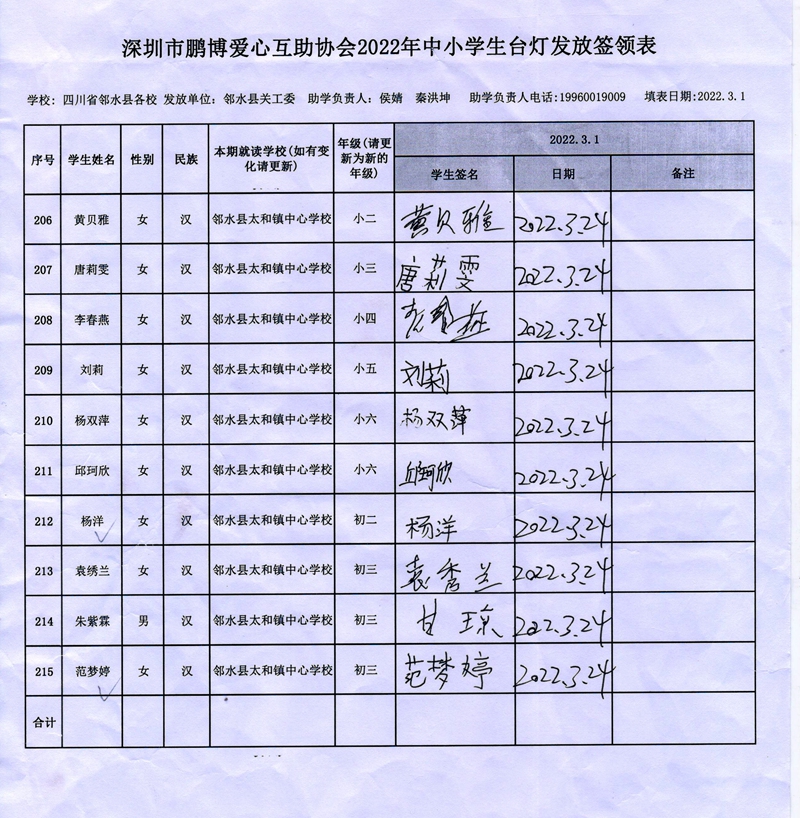 深圳市鹏博爱心互助协会2022年中小学生台灯发放签领表
学校: 四川省邻水县各校 发放单位: 邻水县关工委 助学负责人: 侯婧 秦洪坤 助学负责人电话:19960019009 填表日期:2022.3.1
序号 学生姓名 性别 民族 本期就读学校(如有变化请更新) 年级(请更新为新的年级) 2022.3.1
学生签名 日期 备注
206 黄贝雅 女 汉 邻水县太和镇中心学校 小二 黄贝雅 2022.3.24
207 唐莉雯 女 汉 邻水县太和镇中心学校 小三 唐莉雯 2022.3.24
208 李春燕 女 汉 邻水县太和镇中心学校 小四 2022.3.24
209 刘莉 女 汉 邻水县太和镇中心学校 小五 刘莉 2022.3.24
210 杨双萍 女 汉 邻水县太和镇中心学校 小六 杨双萍 2022.3.24
211 邱珂欣 女 汉 邻水县太和镇中心学校 小六 邱珂欣 2022.3.24
212 杨洋 女 汉 邻水县太和镇中心学校 初二 杨洋 2022.3.24
213 袁绣兰 女 汉 邻水县太和镇中心学校 初三 袁秀兰 2022.3.24
214 朱紫霖 男 汉 邻水县太和镇中心学校 初三 甘琼 2022.3.24
215 范梦婷 女 汉 邻水县太和镇中心学校 初三 范梦婷 2022.3.24
合计